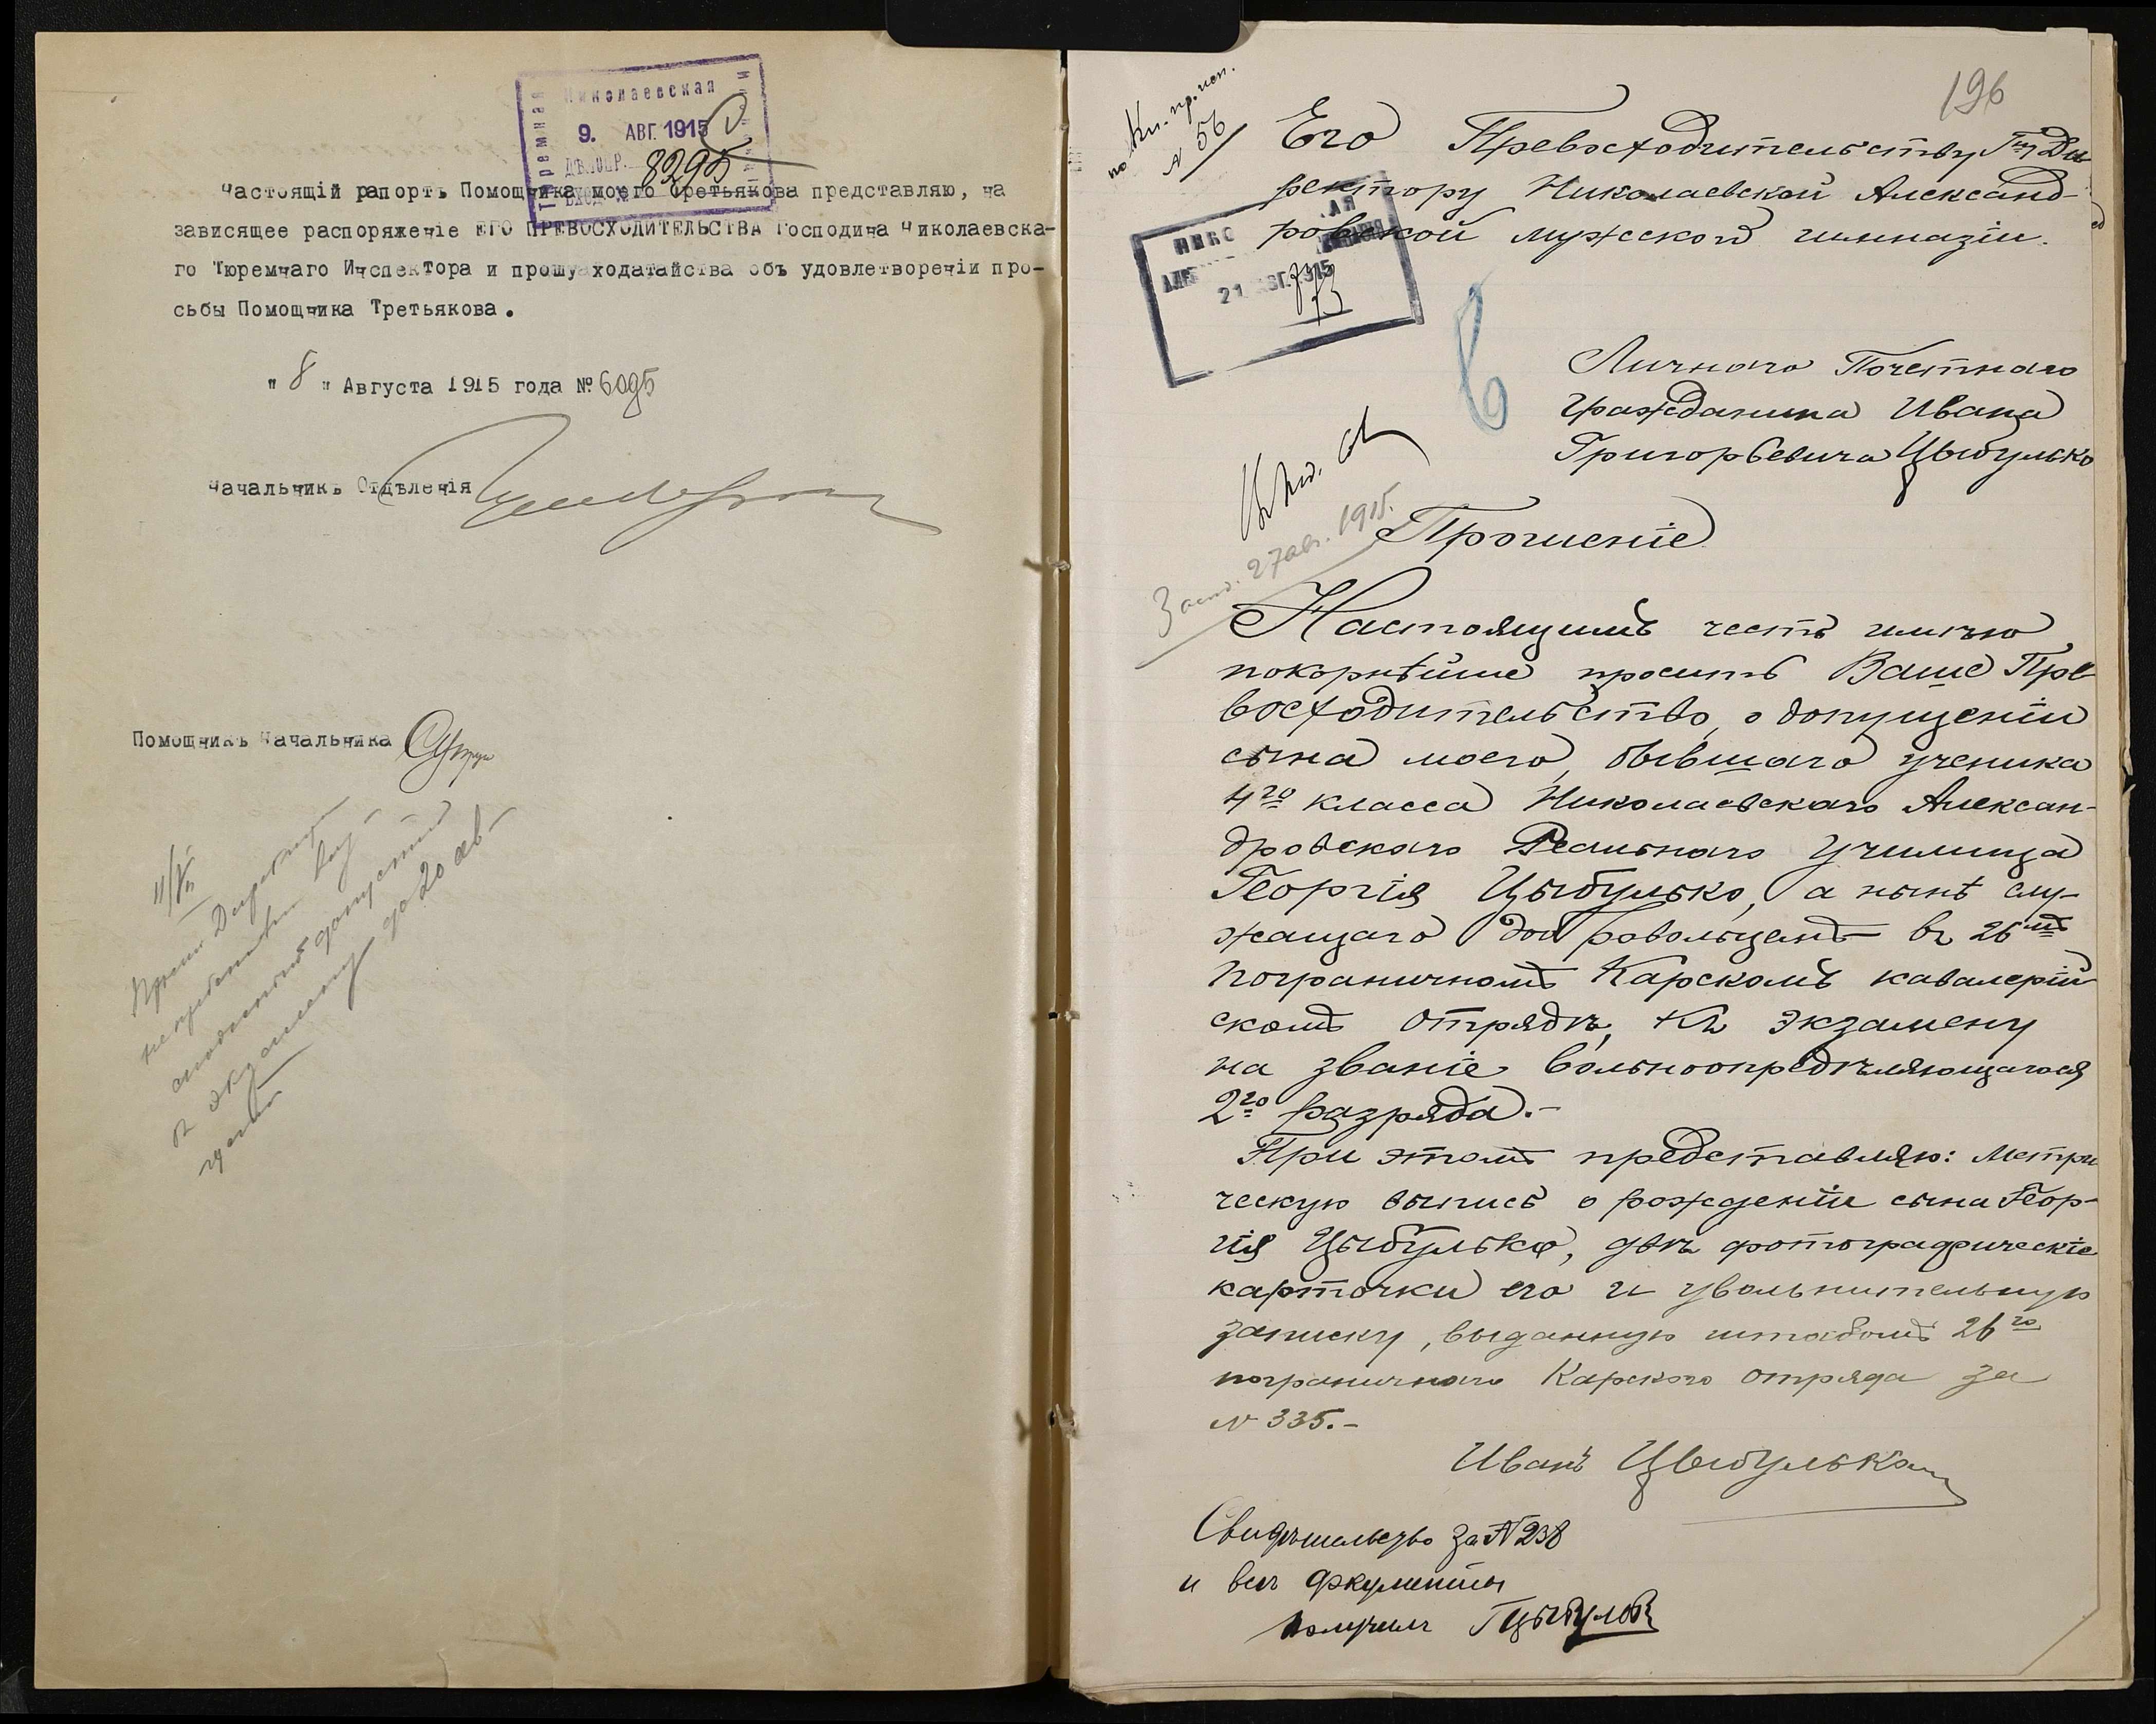 Николаевская
9. АВГ. 1915
8295
Настоящій рапортъ Помощника моего Третьякова представляю, на
зависящее распоряженіе ЕГО ПРЕВОСХОДИТЕЛЬСТВА Господина Николаевска-
го Тюремнаго Инспектора и прошу ходатайства объ удовлетвореніи про-
сьбы Помощника Третьякова.
" 8 " Августа 1915 года № 6095
Начальникъ Отдѣленія
Помощникъ Начальника
Прошу
допустить
къ экзамену до 20 ав-
густа
196
по Кн. пр. исп.
№ 56
Его Превосходительству Гну Ди-
ректору Николаевской Александ-
ровской мужской гимназіи.
21 АВГ. 1915
Личнаго Почетнаго
гражданина Ивана
Григорьевича Цыбулько
Прошеніе
27 авг. 1915.
Настоящимъ честь имѣю
покорнѣйше просить Ваше Пре-
восходительство, о допущеніи
сына моего, бывшаго ученика
4го класса Николаевскаго Алексан-
дровскаго Реальнаго Училища
Георгія Цыбулько, а нынѣ слу-
жащаго добровольцемъ въ 26мъ
пограничномъ Карскомъ кавалерій-
скомъ отрядѣ, къ экзамену
на званіе вольноопредѣляющагося
2го разряда.-
При этомъ представляю: Метри-
ческую выпись о рожденіи сына Геор-
гія Цыбулько, двѣ фотографическіе
карточки его и увольнительную
записку, выданную штабомъ 26го
пограничнаго Карского отряда за
№ 335.-
Иванъ Цыбулько
Свидѣтельство за № 238
и всѣ документы
получилъ Г Цыбулько